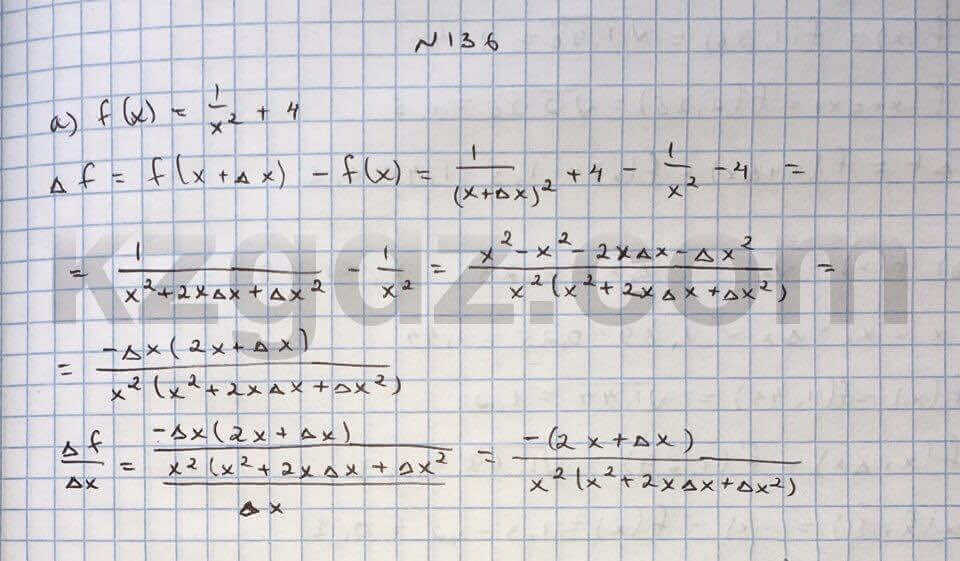 №136
a) f(x) = 1/x² + 4
Δf = f(x + Δx) - f(x) = 1/(x+Δx)² + 4 - 1/x² - 4 =
= 1/(x²+2xΔx+Δx²) - 1/x² = (x² - x² - 2xΔx - Δx²)/(x²(x²+2xΔx+Δx²)) =
= -Δx(2x+Δx)/(x²(x²+2xΔx+Δx²))
Δf/Δx = (-Δx(2x+Δx)/(x²(x²+2xΔx+Δx²))/Δx = -(2x+Δx)/(x²(x²+2xΔx+Δx²))
kzgdz.com